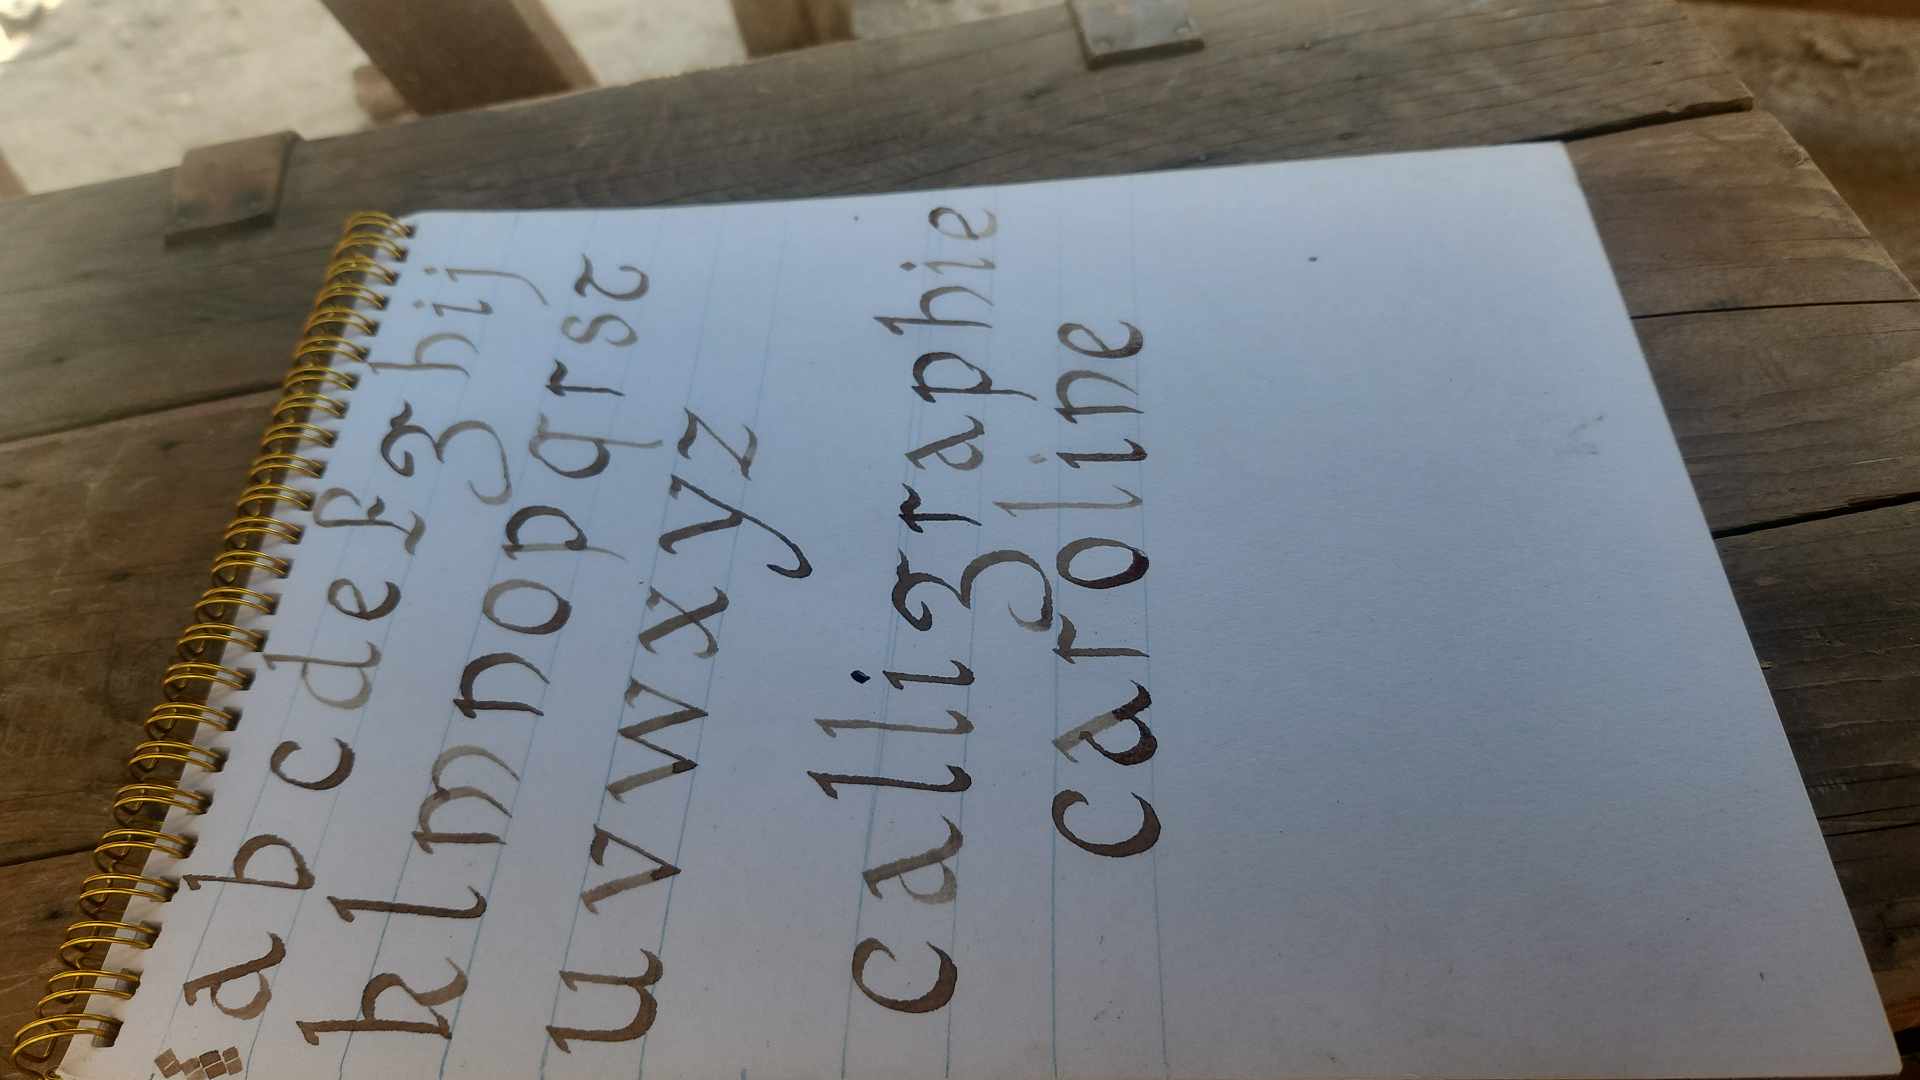 a b c d e f g h i j
k l m n o p q r s t
u v w x y z
calligraphie
caroline